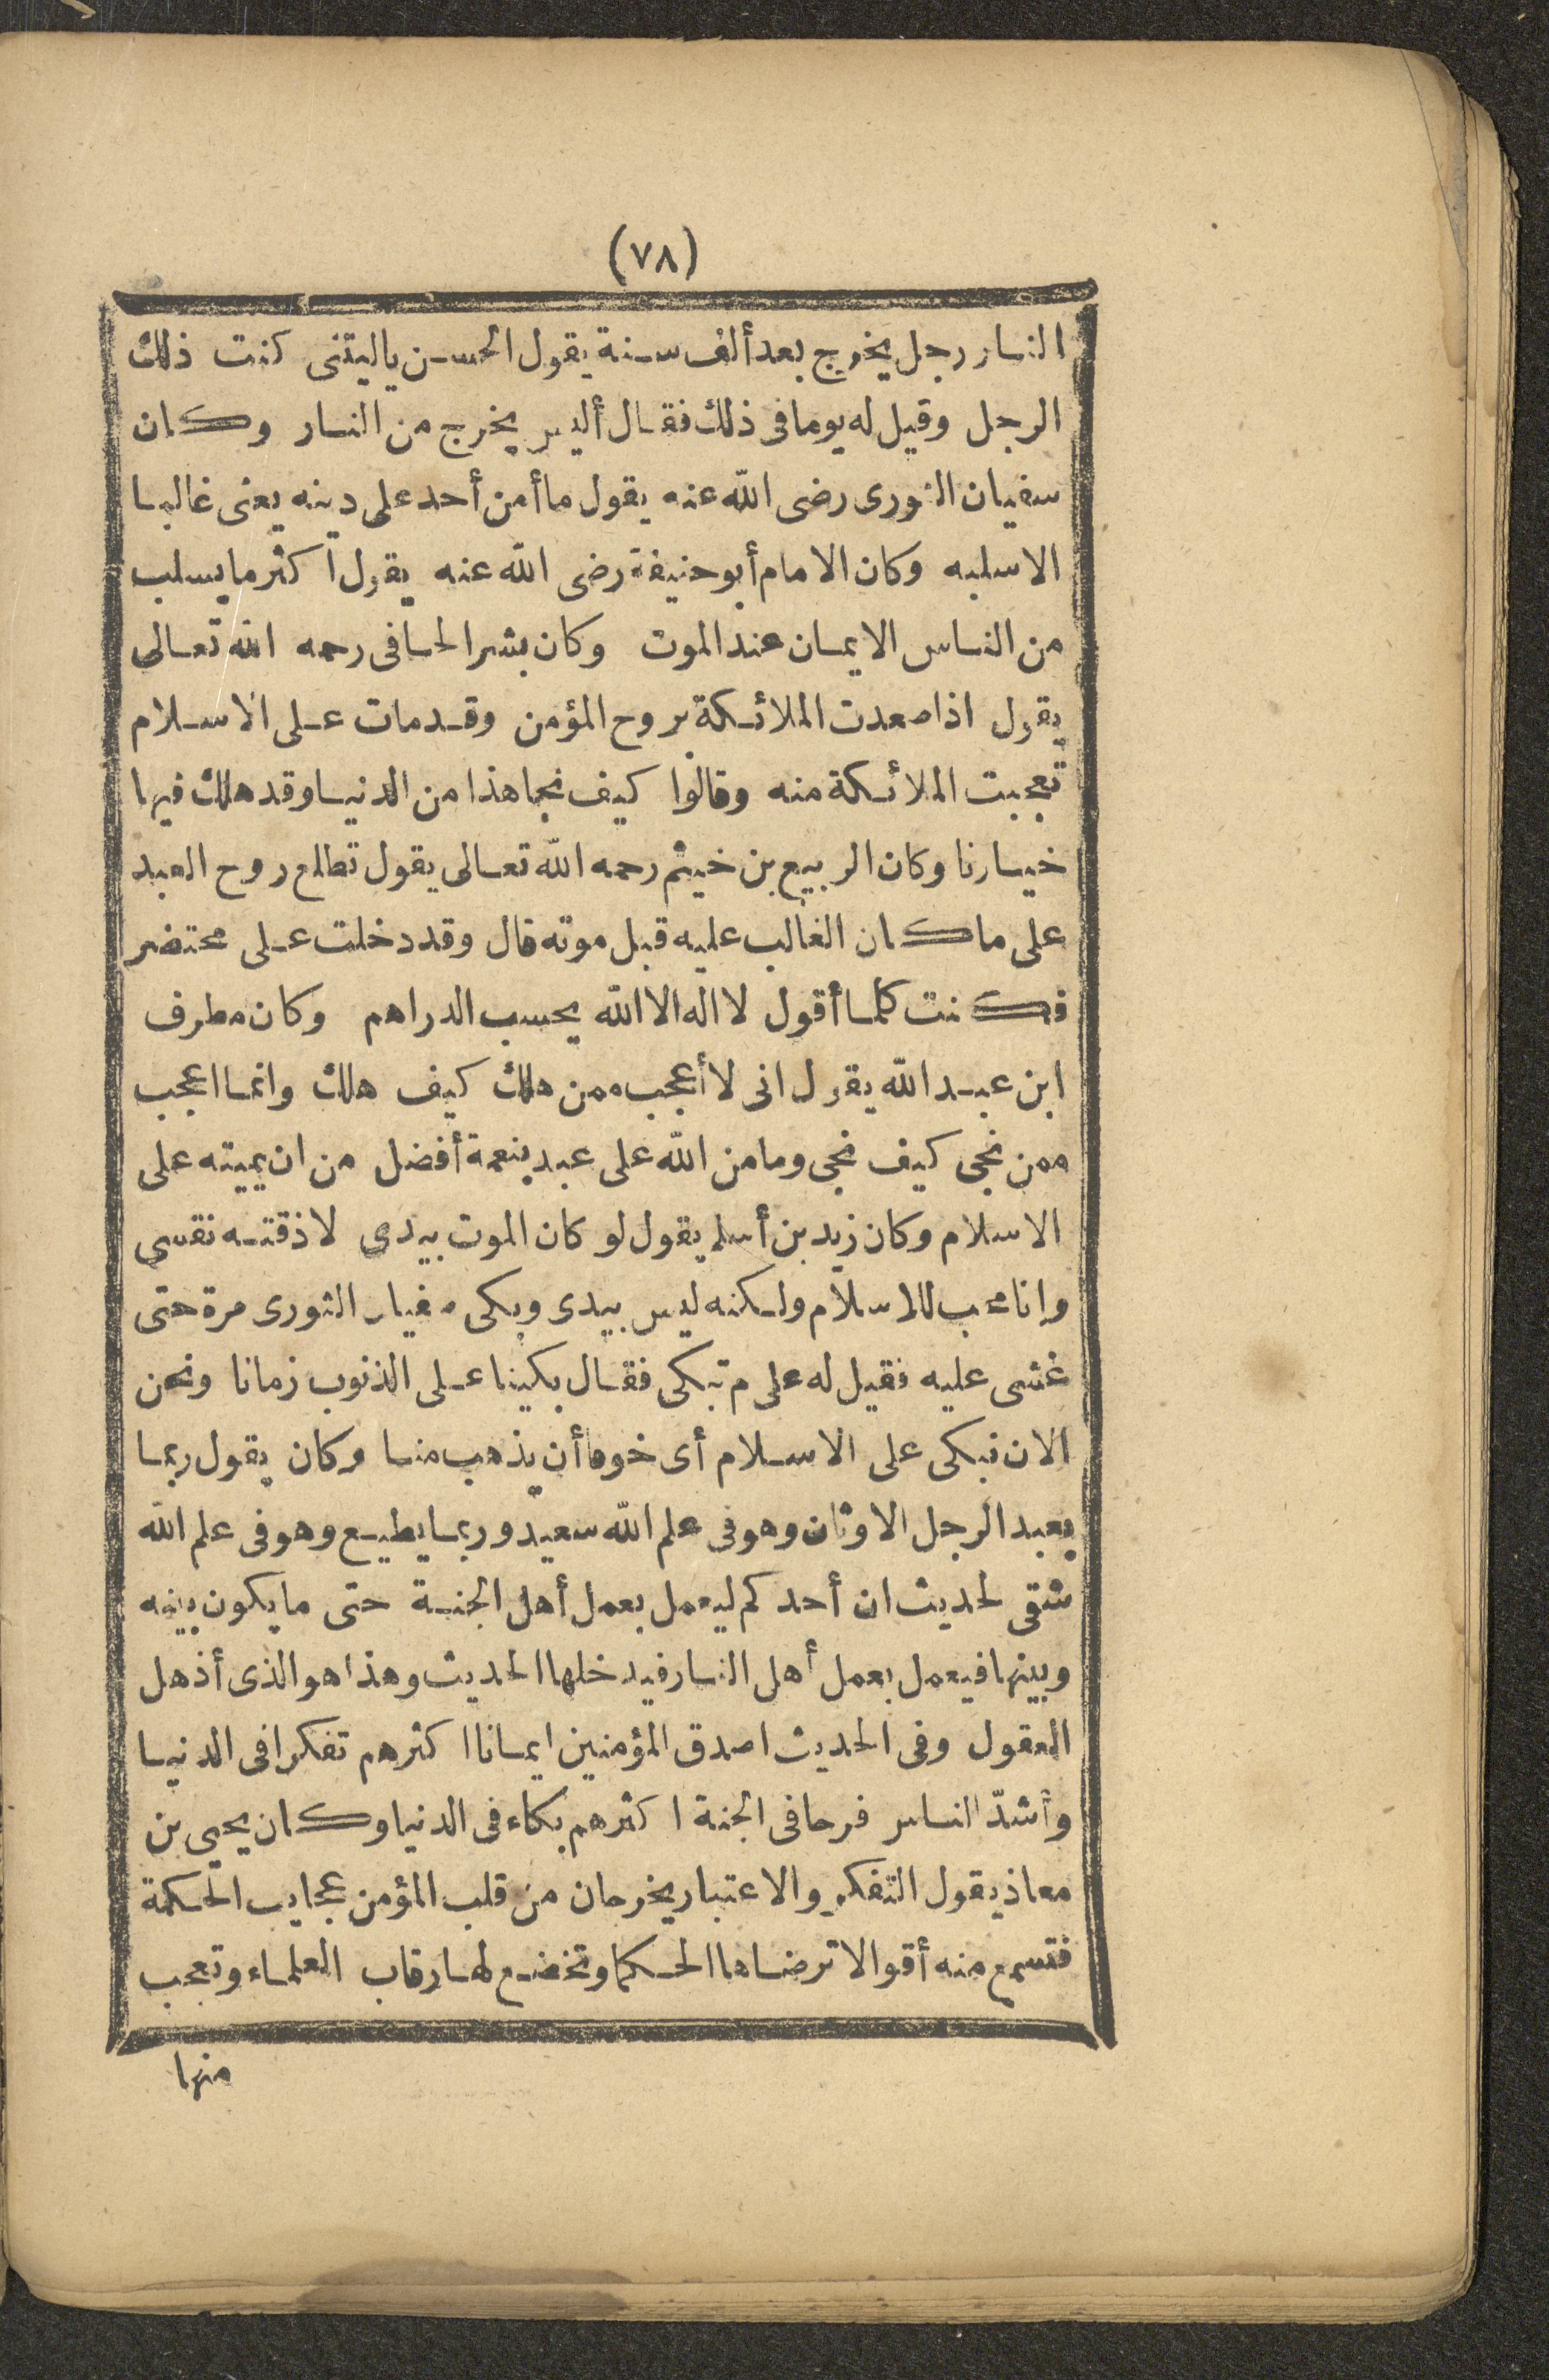 (٧٨)
النار رجل يخرج بعد ألف سنة يقول الحسن ياليتنى كنت ذلك
الرجل وقيل له يوما فى ذلك فقال أليس يخرج من النار وكان
سفيان الثورى رضى الله عنه يقول ما أمن أحد على دينه يعنى غالبا
الاسلبه وكان الامام أبو حنيفة رضى الله عنه يقول أكثر ما يسلب
من الناس الايمان عند الموت وكان بشر الحافى رحمه الله تعالى
يقول اذا صعدت الملائكة بروح المؤمن وقد مات على الاسلام
تعجبت الملائكة منه وقالوا كيف نجا هذا من الدنيا وقد هلك فيها
خيارنا وكان الربيع بن خيثم رحمه الله تعالى يقول تطلع روح العبد
على ما كان الغالب عليه قبل موته قال وقد دخلت على محتضر
فكنت كلما أقول لا اله الا الله يحسب الدراهم وكان مطرف
ابن عبد الله يقول انى لا أعجب ممن هلك كيف هلك وانما اعجب
ممن نجى كيف نجى وما من الله على عبد بنعمة أفضل من ان يميته على
الاسلام وكان زيد بن أسلم يقول لو كان الموت بيدى لاذقته نفسى
وانا محب للاسلام ولكنه ليس بيدى وبكى سفيان الثورى مرة حتى
غشى عليه فقيل له على م تبكى فقال بكينا على الذنوب زمانا ونحن
الان نبكى على الاسلام أى خوفا أن يذهب منا وكان يقول ربما
يعبد الرجل الاوثان وهو فى علم الله سعيد وربما يطيع وهو فى علم الله
شقى لحديث ان أحدكم ليعمل بعمل أهل الجنة حتى ما يكون بينه
وبينها فيعمل بعمل أهل النار فيدخلها الحديث وهذا هو الذى أذهل
العقول وفى الحديث اصدق المؤمنين ايمانا اكثرهم تفكرا فى الدنيا
وأشدّ الناس فرحا فى الجنة اكثرهم بكاء فى الدنيا وكان يحيى بن
معاذ يقول التفكر والاعتبار يخرجان من قلب المؤمن عجايب الحكمة
فتسمع منه أقوالا ترضاها الحكما وتخضع لها رقاب العلماء وتعجب
منها